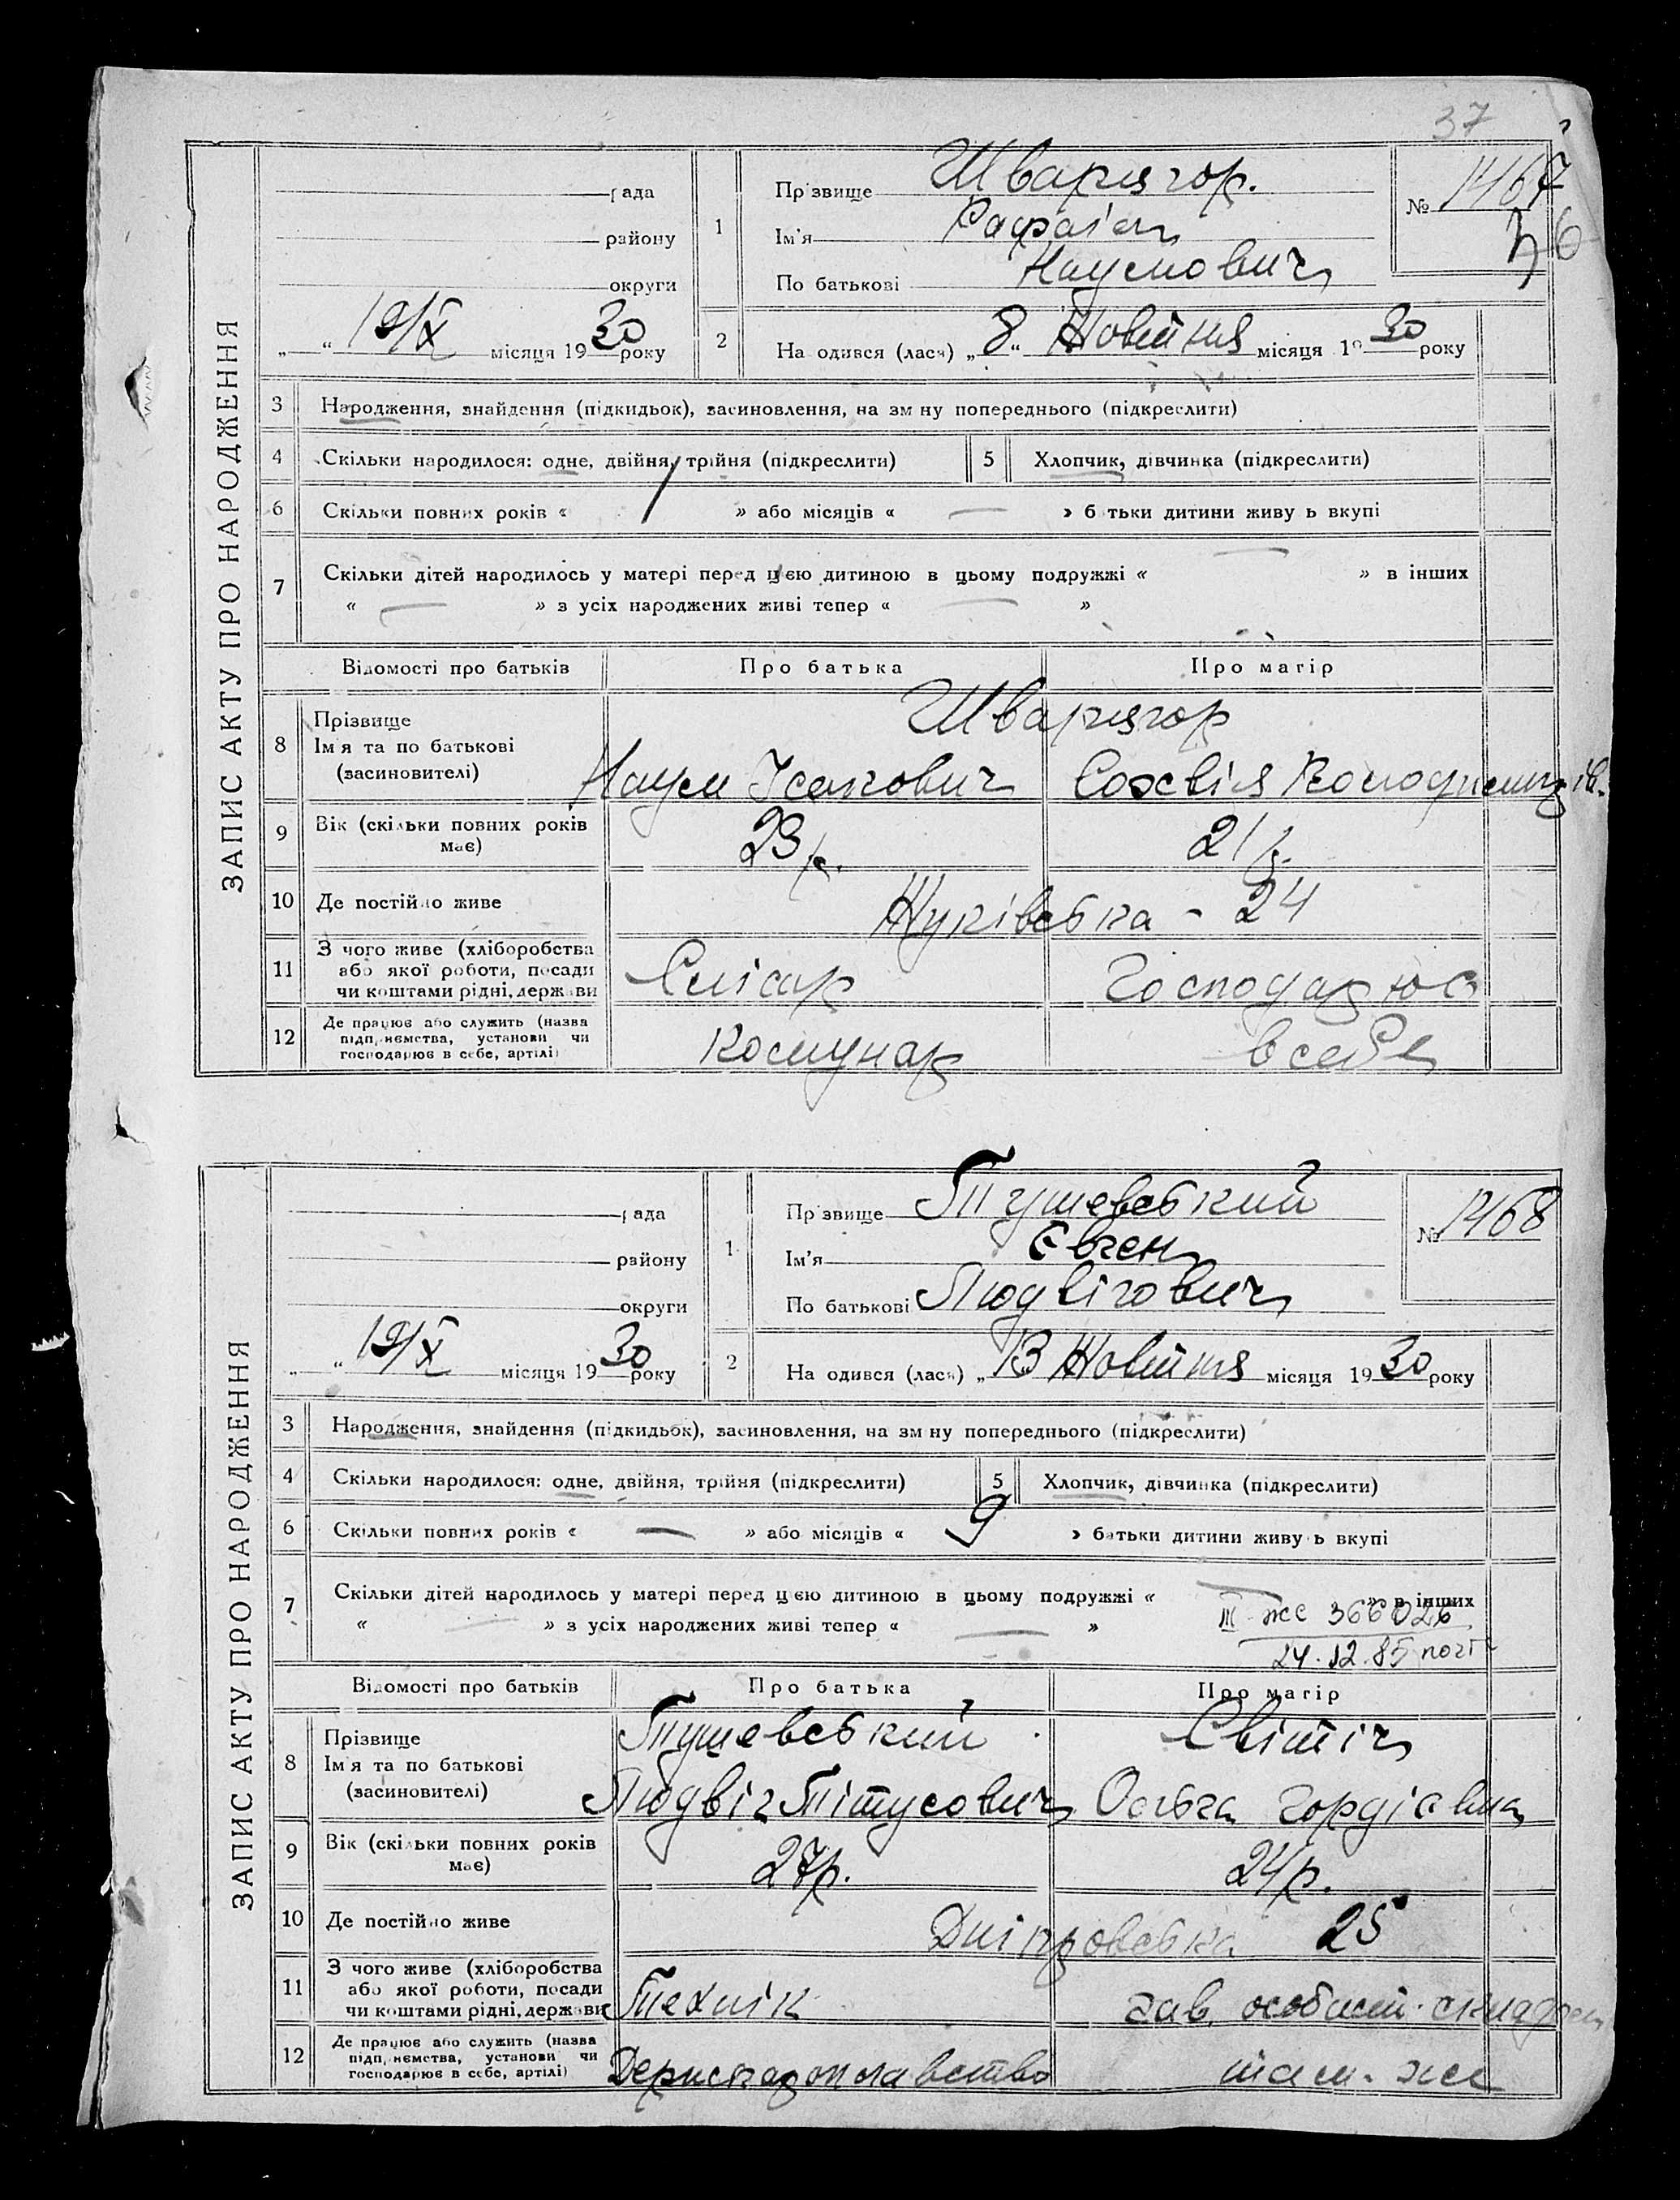 37
ЗАПИС АКТУ ПРО НАРОДЖЕННЯ
рада
району
округи
„ “ 19/X місяця 1930 року
1
Прізвище Шварцгор.
Ім'я Рафаіл
По батькові Наумович
№ 1467
36
2
Народився (лася) „8“ Жовтня місяця 1930 року
3 Народження, знайдення (підкидьок), засиновлення, на зміну попереднього (підкреслити)
4 Скільки народилося: одне, двійня, трійня (підкреслити)
5 Хлопчик, дівчинка (підкреслити)
6 Скільки повних років « / » або місяців « — » батьки дитини живуть вкупі
7 Скільки дітей народилось у матері перед цією дитиною в цьому подружжі « — » в інших
« — » з усіх народжених живі тепер « — »
Відомості про батьків Про батька Про матір
8 Прізвище
Ім'я та по батькові
(засиновителі)
Шварцгор
Наум Ісакович Софвія
9 Вік (скільки повних років має) 23 р. 21 р.
10 Де постійно живе Жуківська - 24
11 З чого живе (хліборобства або якої роботи, посади чи коштами рідні, держави
Слісар Господарює
12 Де працює або служить (назва підприємства, установи чи господарює в себе, артілі)
Комунар в себе
ЗАПИС АКТУ ПРО НАРОДЖЕННЯ
рада
району
округи
„ “ 19/X місяця 1930 року
1
Прізвище Тушевський
Ім'я Євген
По батькові Людвігович
№ 1468
2
Народився (лася) „13 Жовтня місяця 1930 року
3 Народження, знайдення (підкидьок), засиновлення, на зміну попереднього (підкреслити)
4 Скільки народилося: одне, двійня, трійня (підкреслити)
5 Хлопчик, дівчинка (підкреслити)
6 Скільки повних років « — » або місяців « 9 » батьки дитини живуть вкупі
7 Скільки дітей народилось у матері перед цією дитиною в цьому подружжі « — » в інших
« — » з усіх народжених живі тепер « — »
III-жс 366026
24.12.85 почт
Відомості про батьків Про батька Про матір
8 Прізвище
Ім'я та по батькові
(засиновителі)
Тушевський Світіч
Людвіг Тітусович Ольга Гордієвна
9 Вік (скільки повних років має) 27р. 24р.
10 Де постійно живе Дніпровська 25
11 З чого живе (хліборобства або якої роботи, посади чи коштами рідні, держави
Технік зав. особист. складом
12 Де працює або служить (назва підприємства, установи чи господарює в себе, артілі)
Держпароплавство там-же